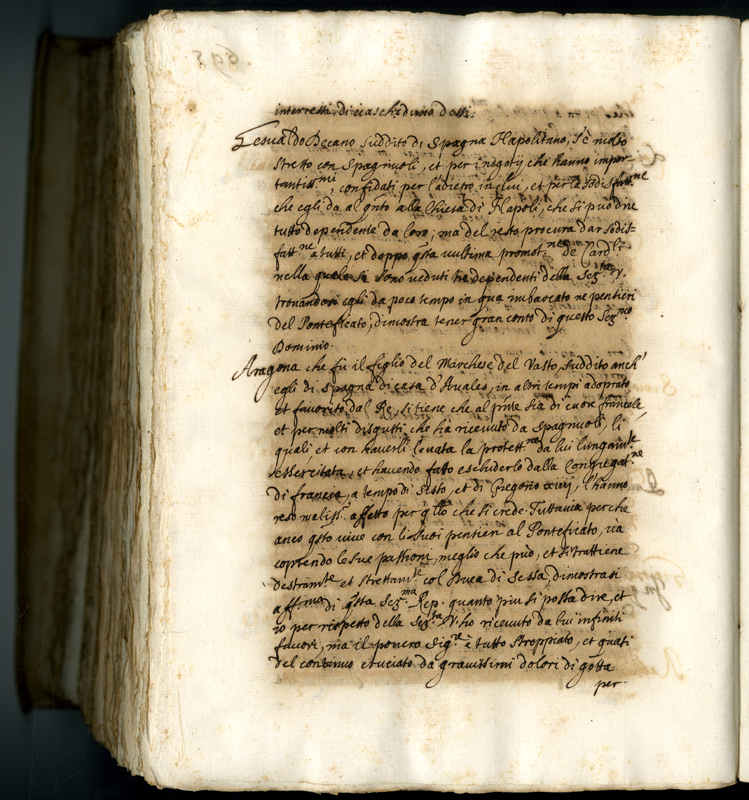 interessi di ciascheduno dessi.
Gesualdo Decano suddito di Spagna Napolitano, s'è molto
stretto con Spagnuoli, et per i negotij che hanno impor-
tantiss.mi confidati per l'adietro in lui, et per la sodisfatt.ne
che egli da al gnte alla Chiesa di Napoli, che si può dire
tutto dependente da loro; ma del resto procura dar sodis-
fatt.ne a tutti, et doppo qsta ultima promot.ne de Card.li
nella quale si sono veduti tre dependenti della Ser.ta V.
trovandosi egli da poco tempo in qua imbarcato ne pensieri
del Ponteficato, dimostra tener gran conto di questo Ser.mo
Dominio.
Aragona che fù il figlio del Marchese del Vasto, suddito anch'
egli di Spagna di casa d'Avalos, in altri tempi adoprato
et favorito dal Re, si tiene che al pnte sia di cuore francese,
et per molti disgusti che hà ricevuto da Spagnuoli, li
quali et con haverli levata la protett.ne da lui lungam.te
essercitata, et havendo fatto escluderlo dalla Congregat.ne
di francia, a tempo di Sisto, et di Gregorio xiiij, l'hanno
reso maliss.o affetto per qllo che si crede. Tuttavia perche
anco qsto vive con li suoi pensieri al Ponteficato, và
coprendo le sue passioni meglio che può, et si trattiene
destram.te et strettam.te col Duca di Sessa, dimostrasi
aff.mo di qsta Ser.ma Rep. quanto piu si possa dire, et
io per rispetto della Ser.ta V. ho ricevuto da lui infiniti
favori, ma il povero Sig.re è tutto stroppiato, et quasi
del continuo cruciato da gravissimi dolori di gotta
per